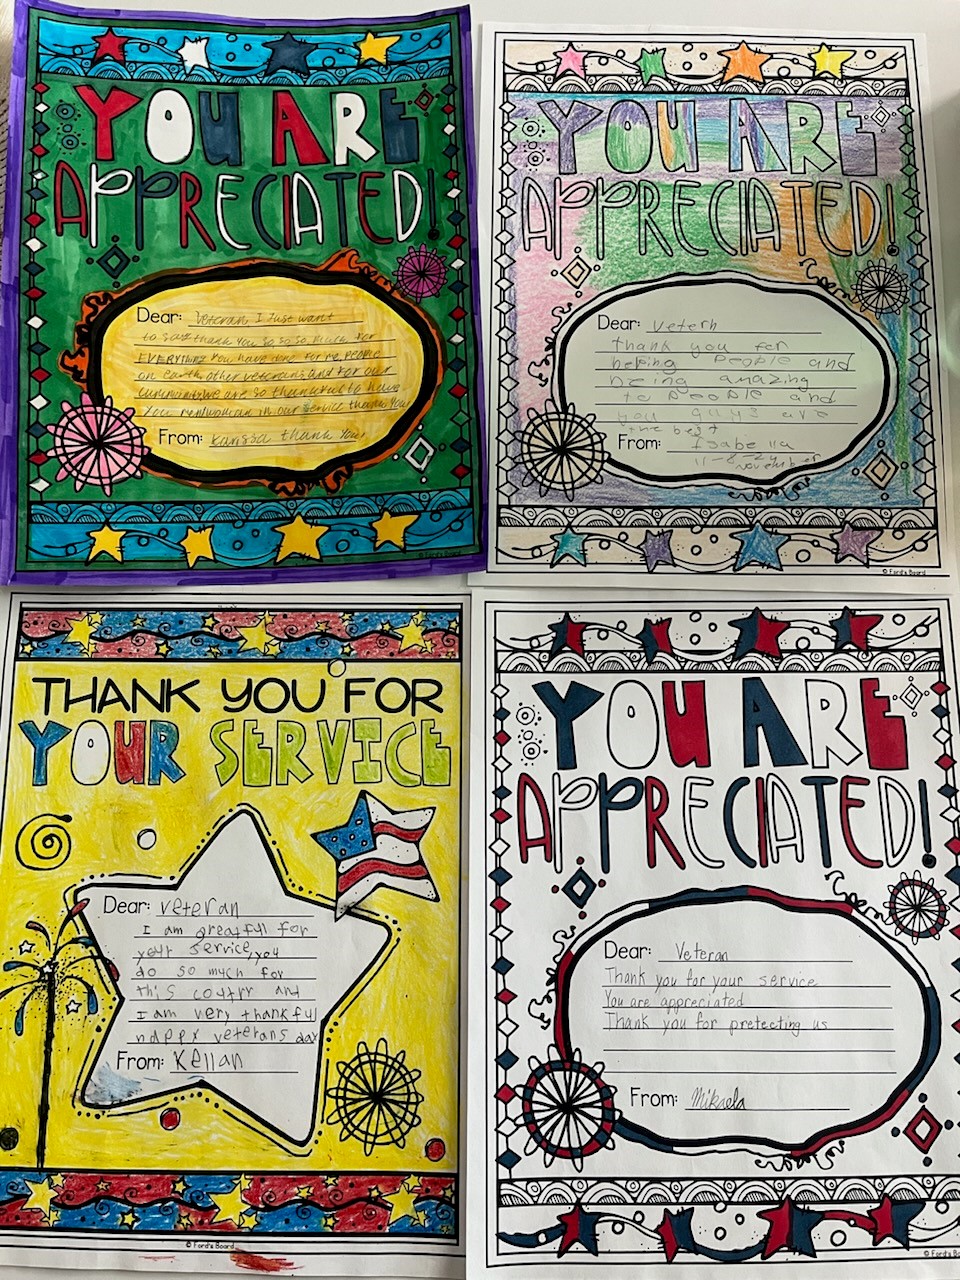 YOU ARE
APPRECIATED!
Dear: Veteran I Just want
to say thank you so so so much for
EVERYthing you have done for me, people
on earth, other veterans and for our
community we are so thankful to have
you men/woman in our service thank you!
From: Karissa thank you!
© Ford's Board
YOU ARE
APPRECIATED!
Dear: Veterh
thank you for
heping people and
being amazing
to people and
you guys are
the best
From: Isabella
11-8-24
november
© Ford's Board
THANK YOU FOR
YOUR SERVICE
Dear: veteran
I am greatful for
your service, you
do so much for
this coutry and
I am very thankful
happy veterans day
From: Kellan
© Ford's Board
YOU ARE
APPRECIATED!
Dear: Veteran
Thank you for your service
You are appreciated
Thank you for pretecting us
From: Mikaela
© Ford's Bo